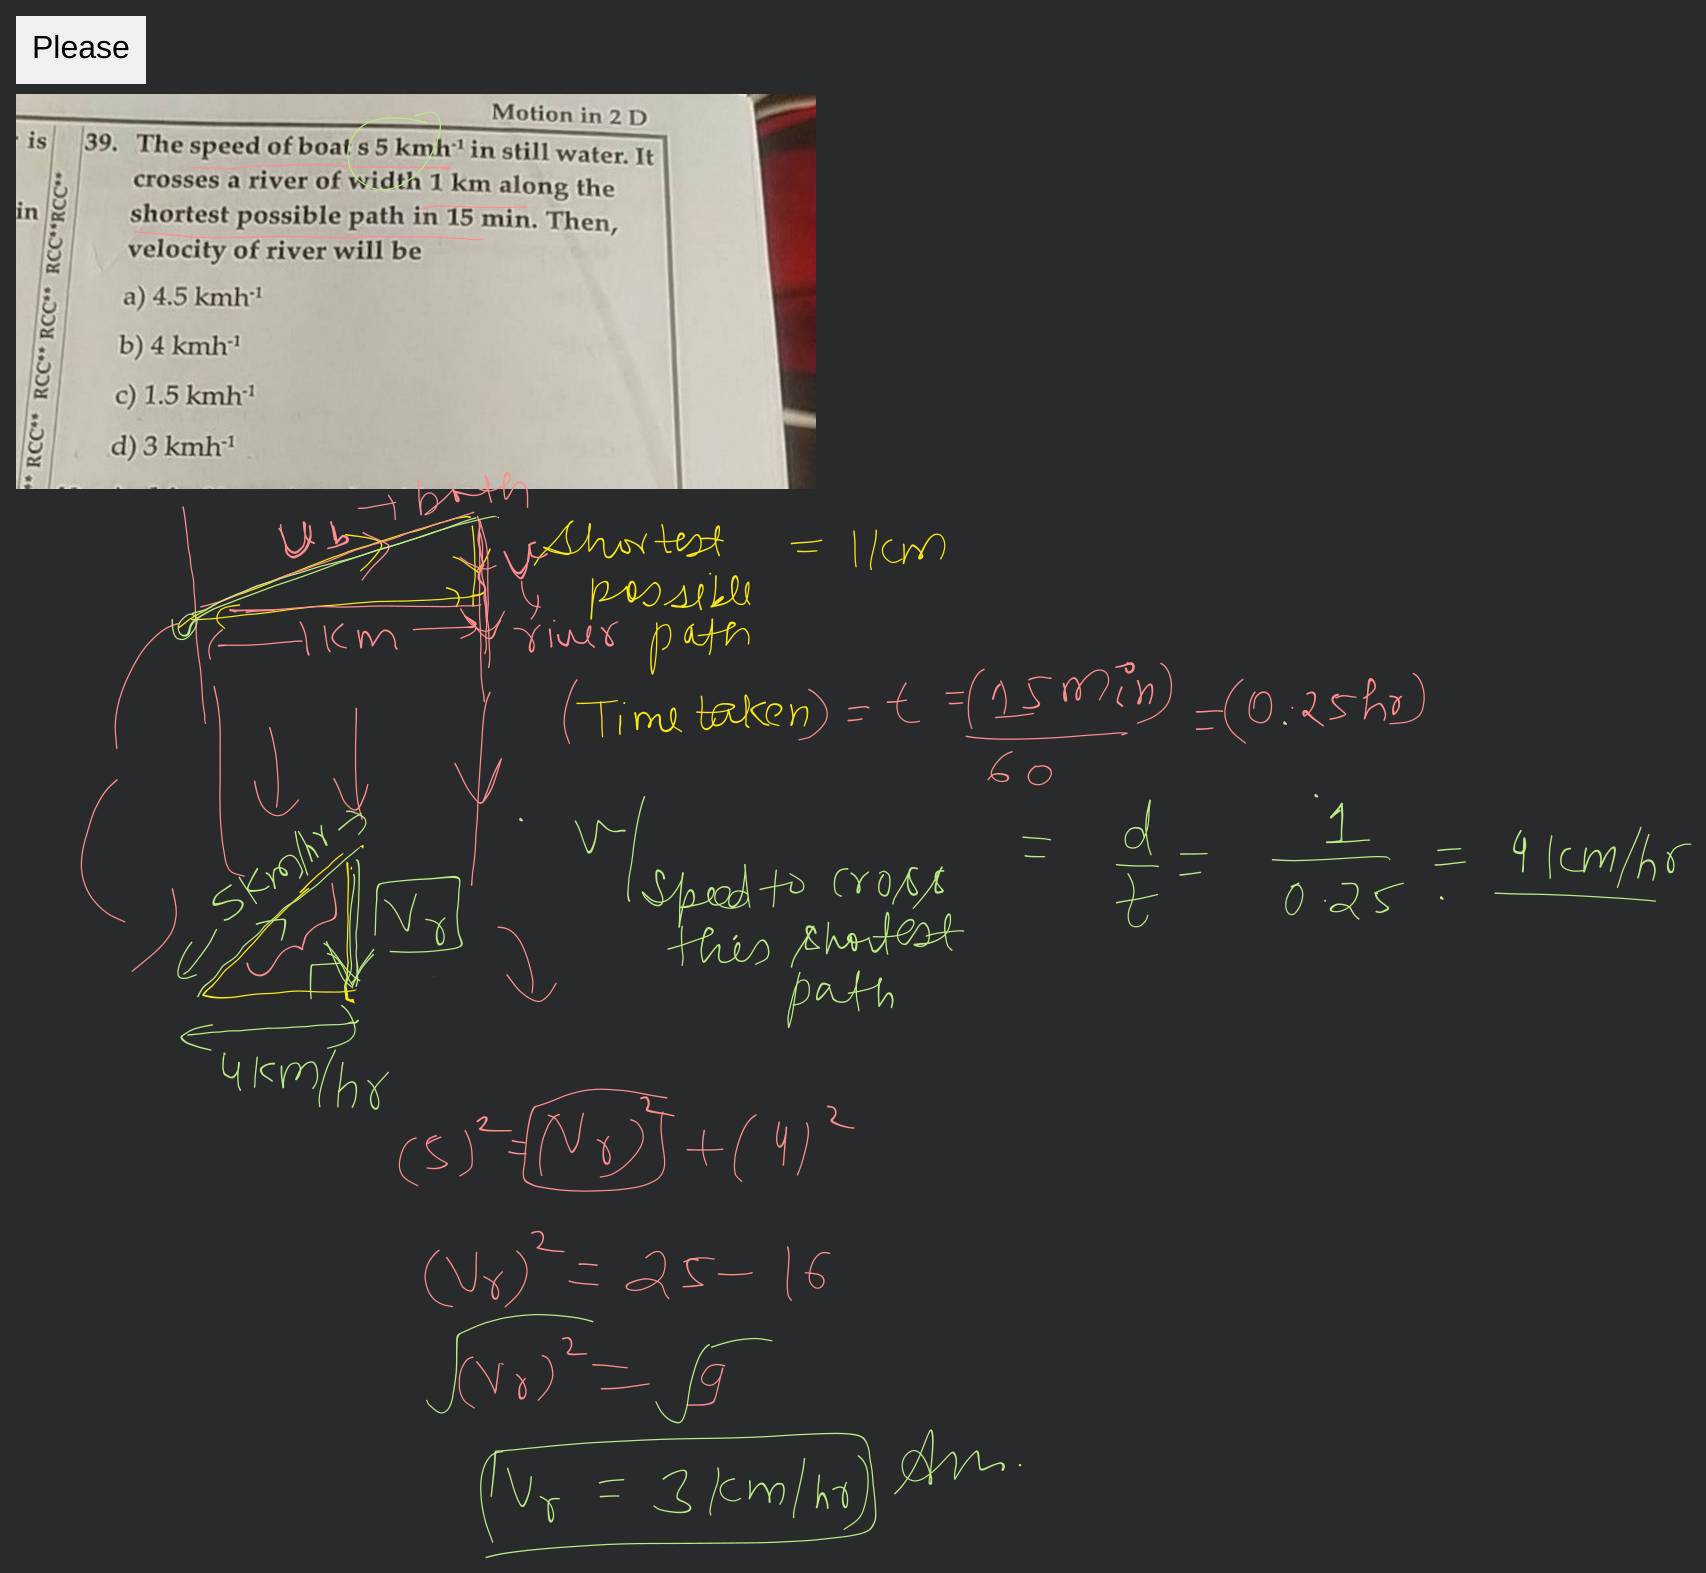 Please
Motion in 2 D
is
in
RCC** RCC** RCC** RCC**RCC**
39. The speed of boat s 5 kmh-1 in still water. It
crosses a river of width 1 km along the
shortest possible path in 15 min. Then,
velocity of river will be
a) 4.5 kmh-1
b) 4 kmh-1
c) 1.5 kmh-1
d) 3 kmh-1
Vr
river
1 km
shortest = 1 km
possible
path
(Time taken) = t = (15 min)/60 = (0.25 hr)
V/speed to cross = d/t = 1/0.25 = 4 km/hr
this shortest
path
5 km/hr
Vr
4 km/hr
(5)² = (Vr)² + (4)²
(Vr)² = 25 - 16
√(Vr)² = √9
Vr = 3 km/hr Ans.